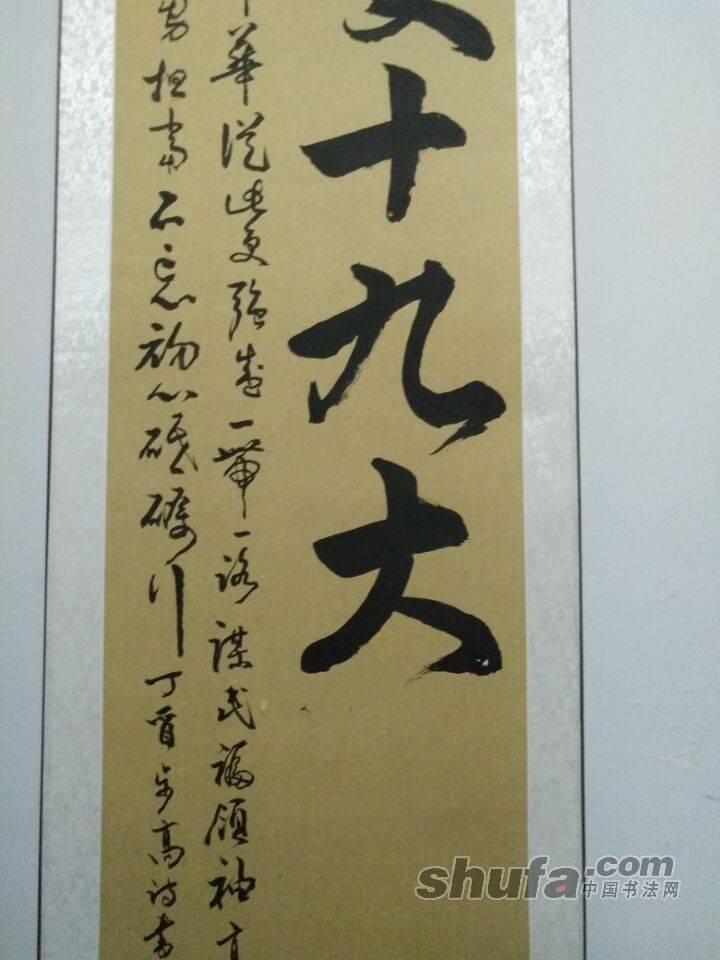 十九大
華從此更強盛一帶一路謀民福領袖
勇担當不忘初心砥礪行丁酉年高詩書
shufa.com
中国书法网